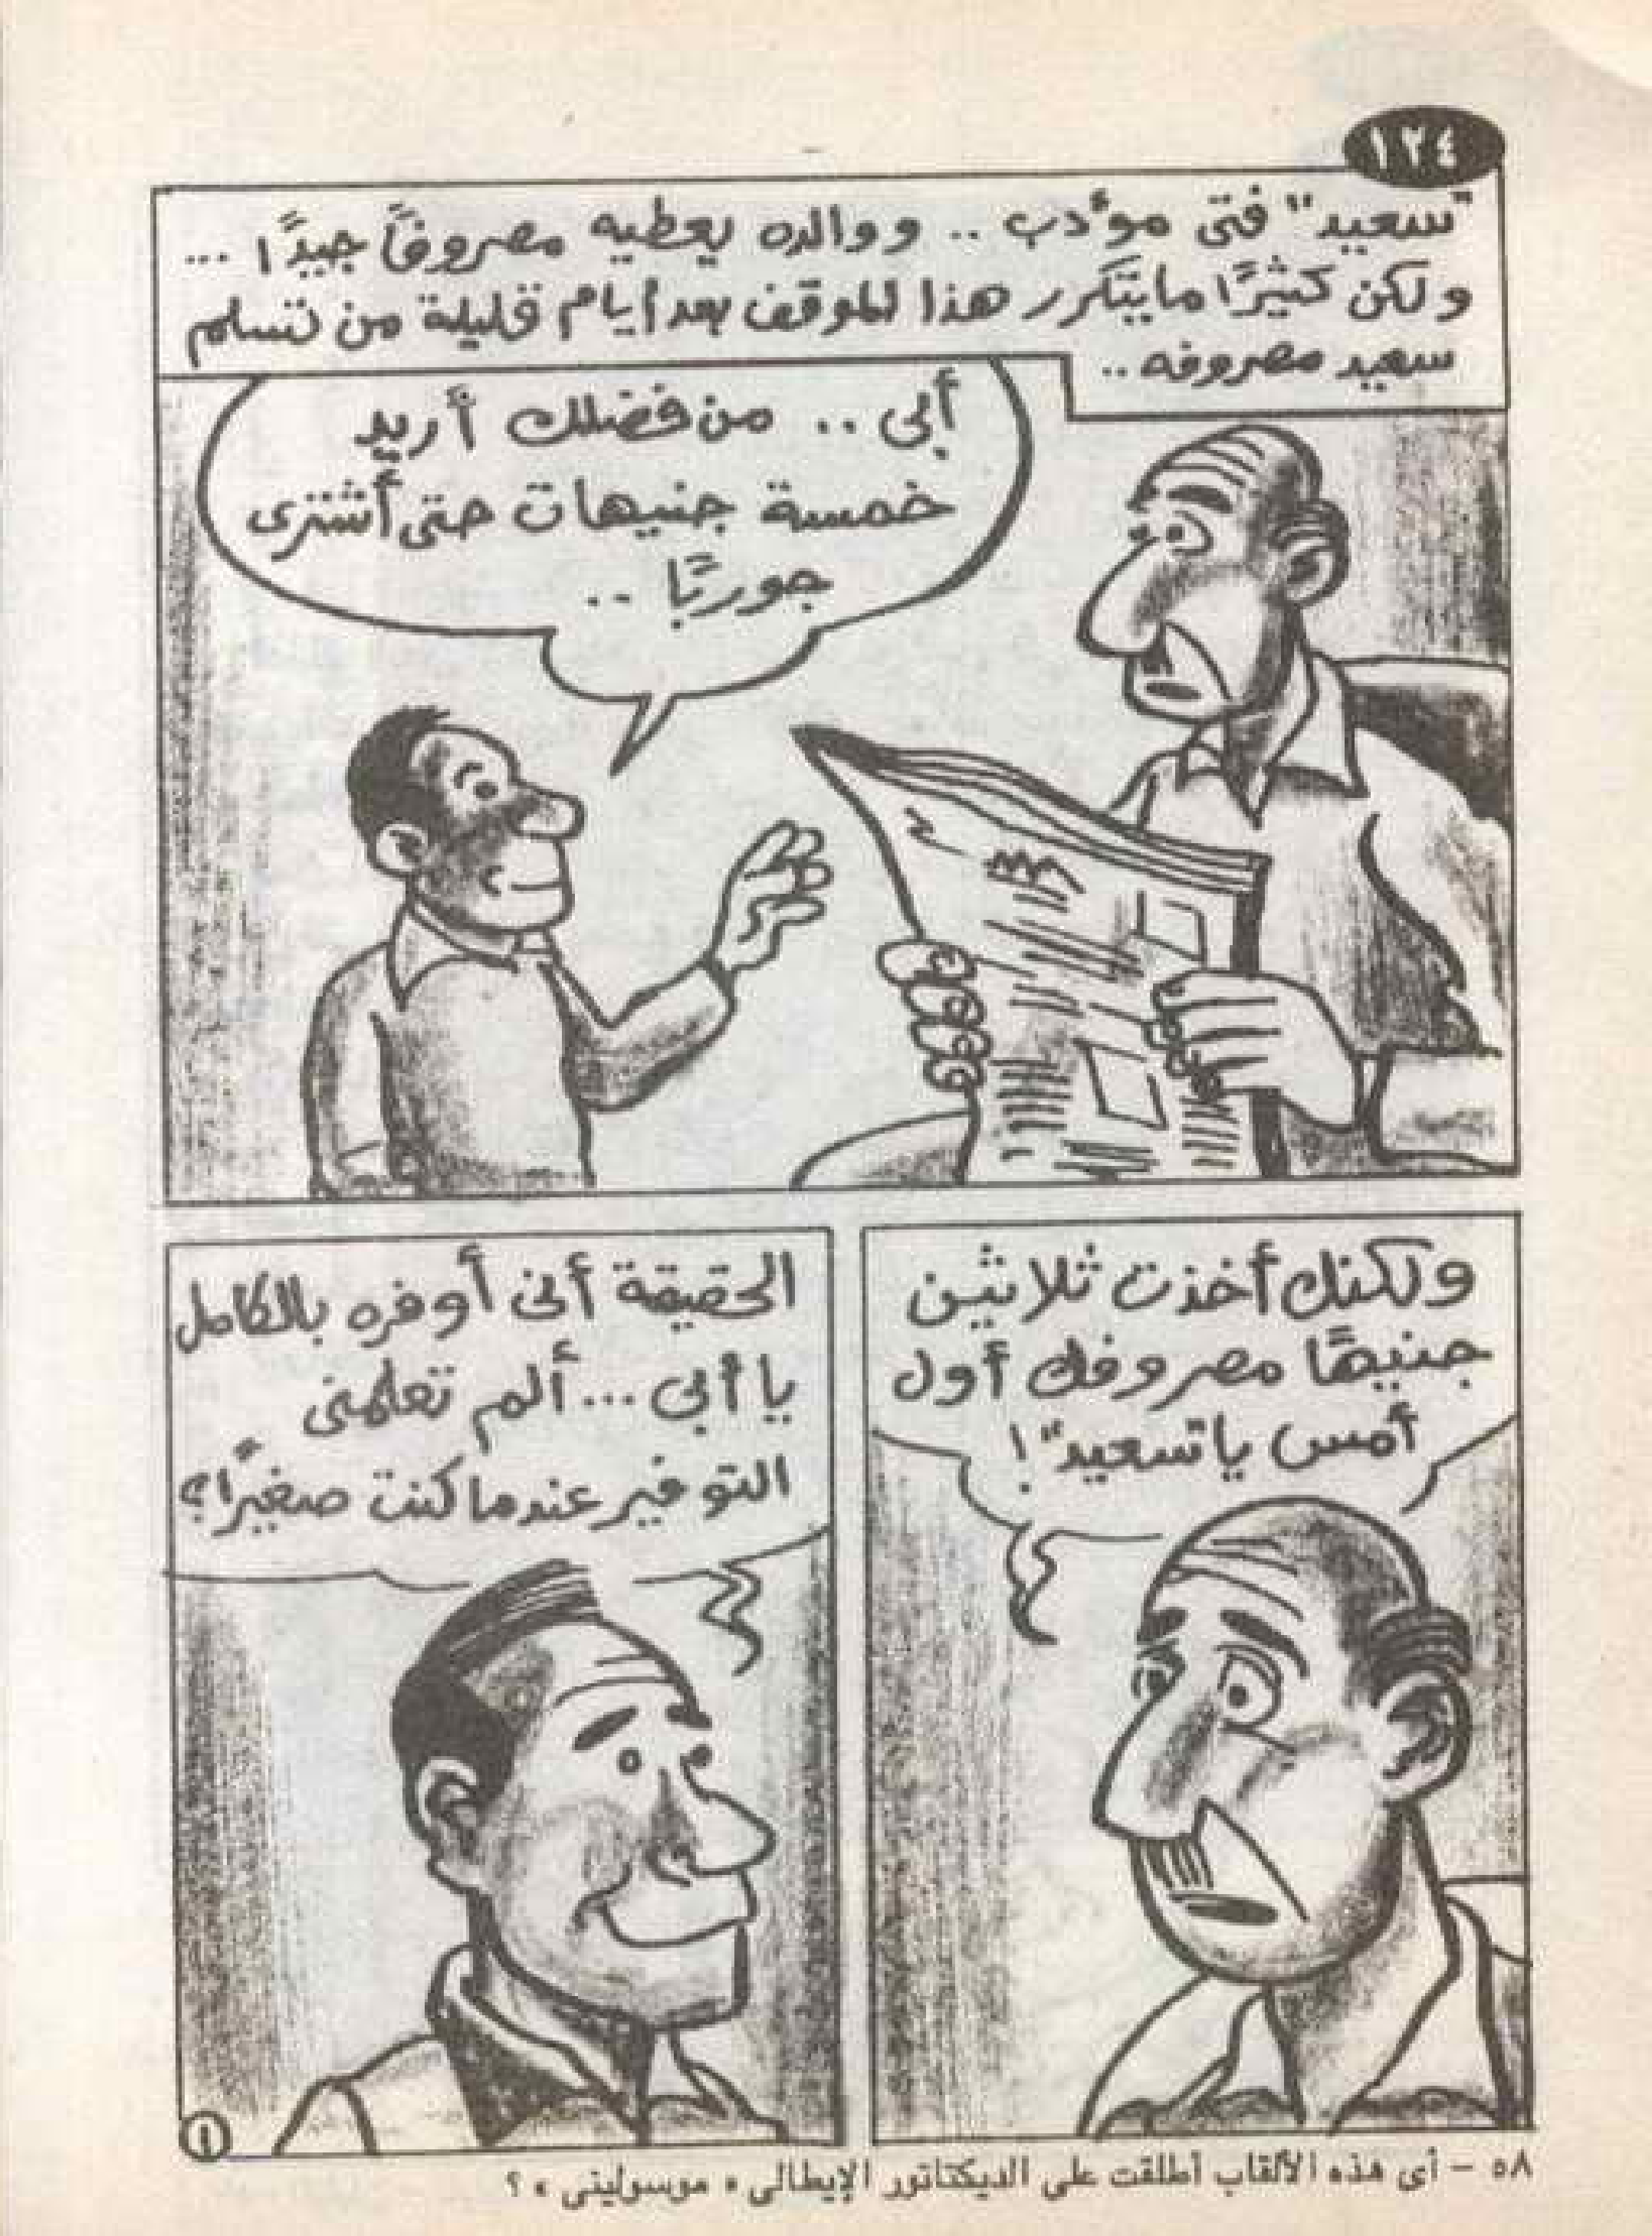 ١٢٤
"سعيد" فتى مؤدب .. ووالده يعطيه مصروفاً جيدًا ...
ولكن كثيرًا مايتكرر هذا الموقف بعد أيام قليلة من تسلم
سعيد مصروفه ..
أبى .. من فضلك أريد
خمسة جنيهات حتى أشترى
جوربًا ..
ولكنك أخذت ثلاثين
جنيهًا مصروفك أول
أمس يا "سعيد" !
الحقيقة أنى أوفره بالكامل
يا أبى ... ألم تعلمنى
التوفير عندما كنت صغيرًا؟
١
٥٨ - أى هذه الألقاب أطلقت على الديكتاتور الإيطالى « موسولينى » ؟